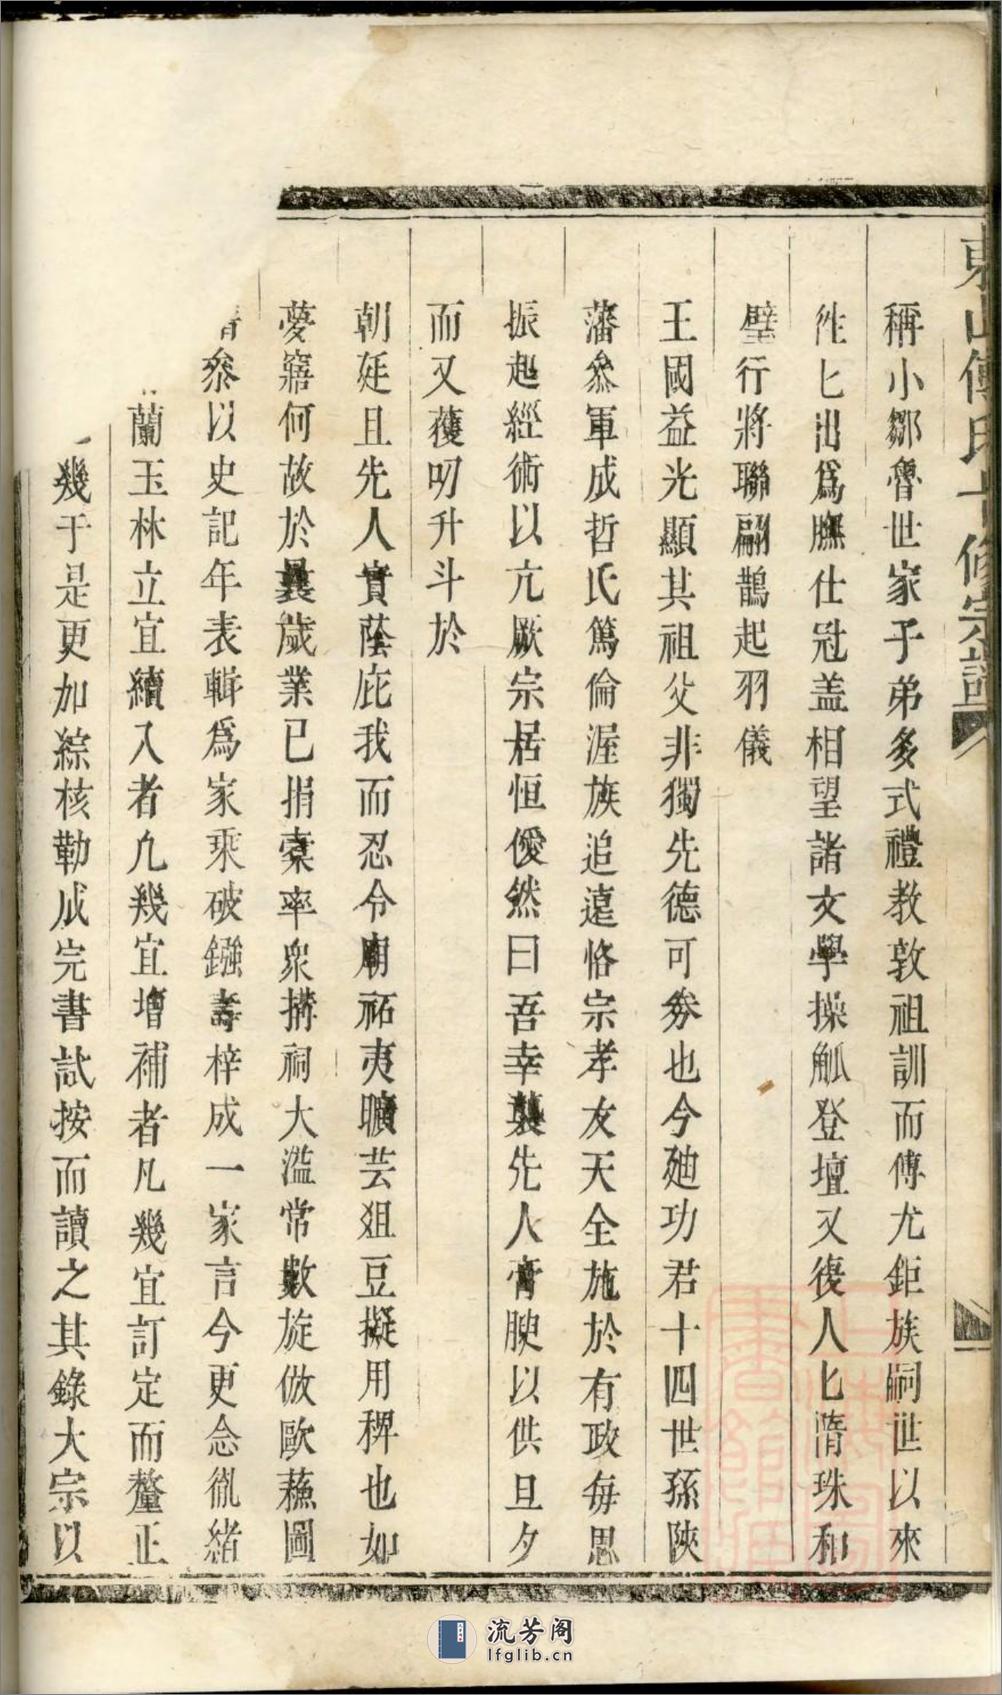 稱小鄒魯世家子弟多式禮教敦祖訓而傳尤鉅族嗣世以來
徃匕出爲膴仕冠盖相望諸文學操觚登壇又復人匕隋珠和
璧行將聯翩鵲起羽儀
王國益光顯其祖父非獨先德可劵也今廸功君十四世孫陝
藩叅軍成哲氏篤倫渥族追遠恪宗孝友天全施於有政每思
振起經術以亢厥宗居恒僾然曰吾幸襲先人膏腴以供旦夕
而又獲叨升斗於
朝廷且先人實蔭庇我而忍令廟祏夷曠芸俎豆擬用稗也如
夢寤何故於曩歲業已捐槖率衆搆祠大滥常數旋倣歐蘓圖
叅以史記年表輯爲家乘破鏹壽梓成一家言今更念胤緒
蘭玉林立宜續入者凢幾宜增補者凡幾宜訂定而釐正
幾于是更加綜核勒成完書試按而讀之其錄大宗以
東山傅氏修宗譜
流芳阁
lfglib.cn